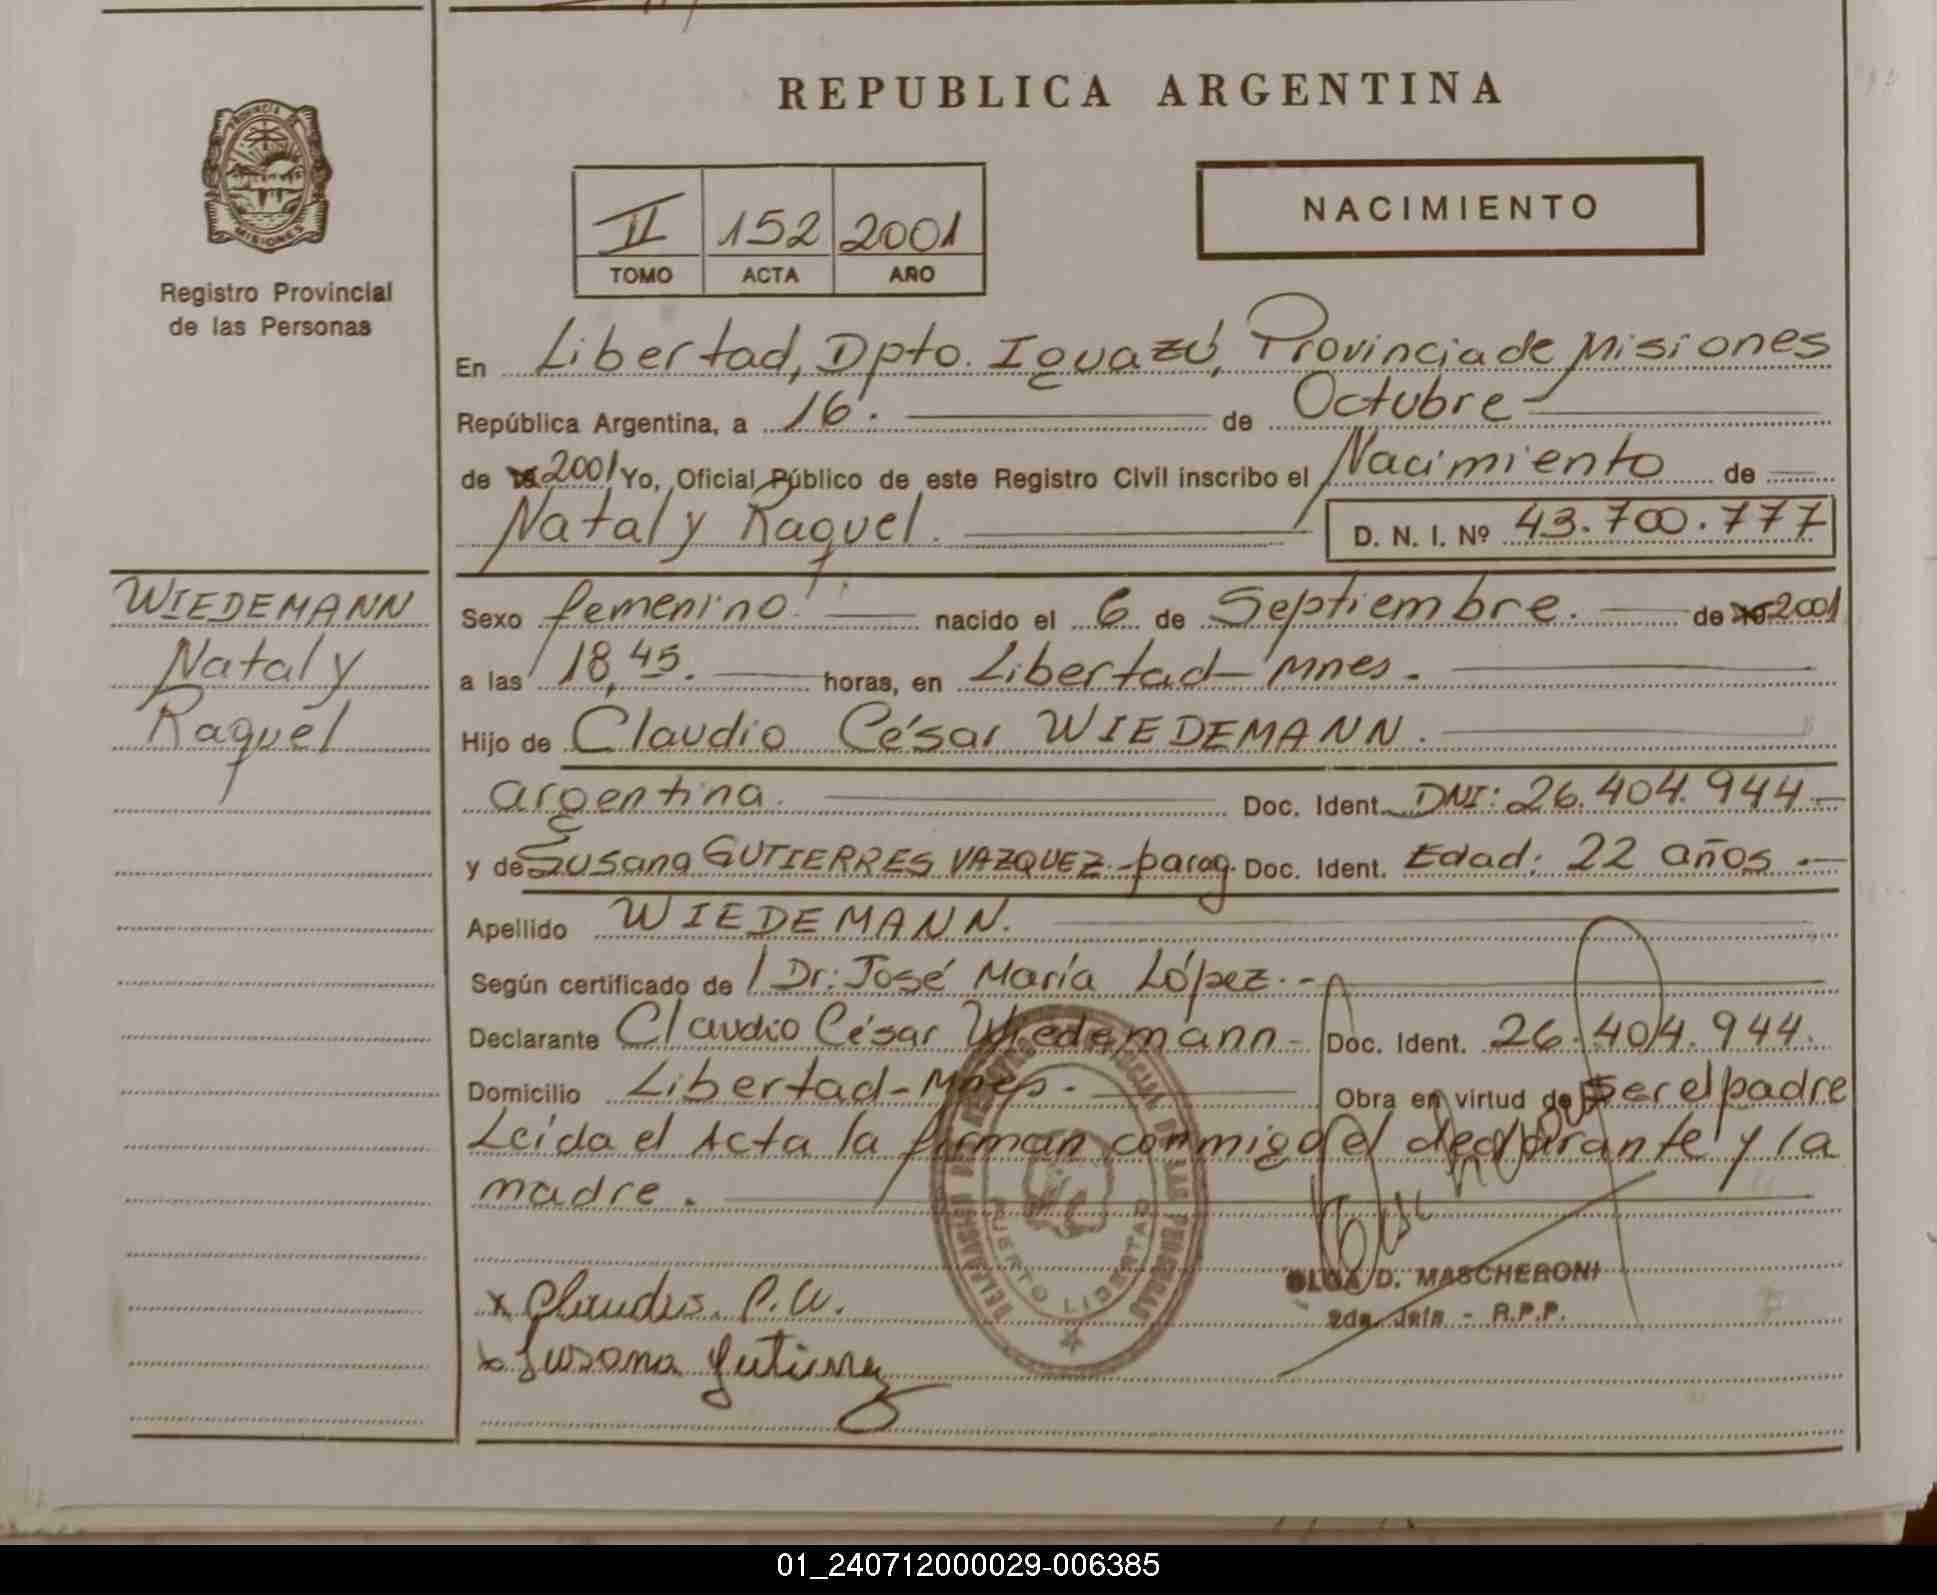 REPUBLICA ARGENTINA
PROVINCIA DE
MISIONES
Registro Provincial
de las Personas
II 152 2001
TOMO ACTA AÑO
NACIMIENTO
En Libertad, Dpto. Iguazú, Provincia de Misiones
República Argentina, a 16. de Octubre
de 19 2001 Yo, Oficial Público de este Registro Civil inscribo el Nacimiento de
Nataly Raquel. D. N. I. Nº 43.700.777
WIEDEMANN
Nataly
Raquel
Sexo femenino. nacido el 6 de Septiembre. de 19 2001
a las 18,45. horas, en Libertad - Mnes.
Hijo de Claudio César WIEDEMANN.
argentina. Doc. Ident. DNI: 26.404.944 -
y de Susana GUTIERRES VAZQUEZ - parag. Doc. Ident. Edad: 22 años . -
Apellido WIEDEMANN.
Según certificado de Dr: José María López. -
Declarante Claudio César Wiedemann - Doc. Ident. 26.404.944.
Domicilio Libertad - Mnes. Obra en virtud de ser el padre
Leída el Acta la firman conmigo el declarante y la
madre.
PUERTO LIBERTAD
OLGA D. MASCHERONI
2da. Jefa - R.P.P.
x Claudio. C. W.
x Susana Gutierrez
01_240712000029-006385